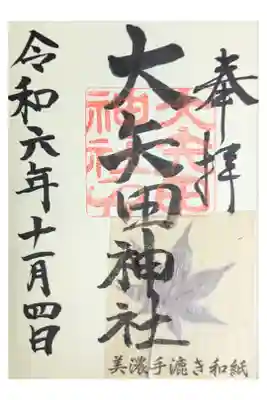 奉拝
大矢田神社
大矢田
神社
令和六年十一月四日
美濃手漉き和紙